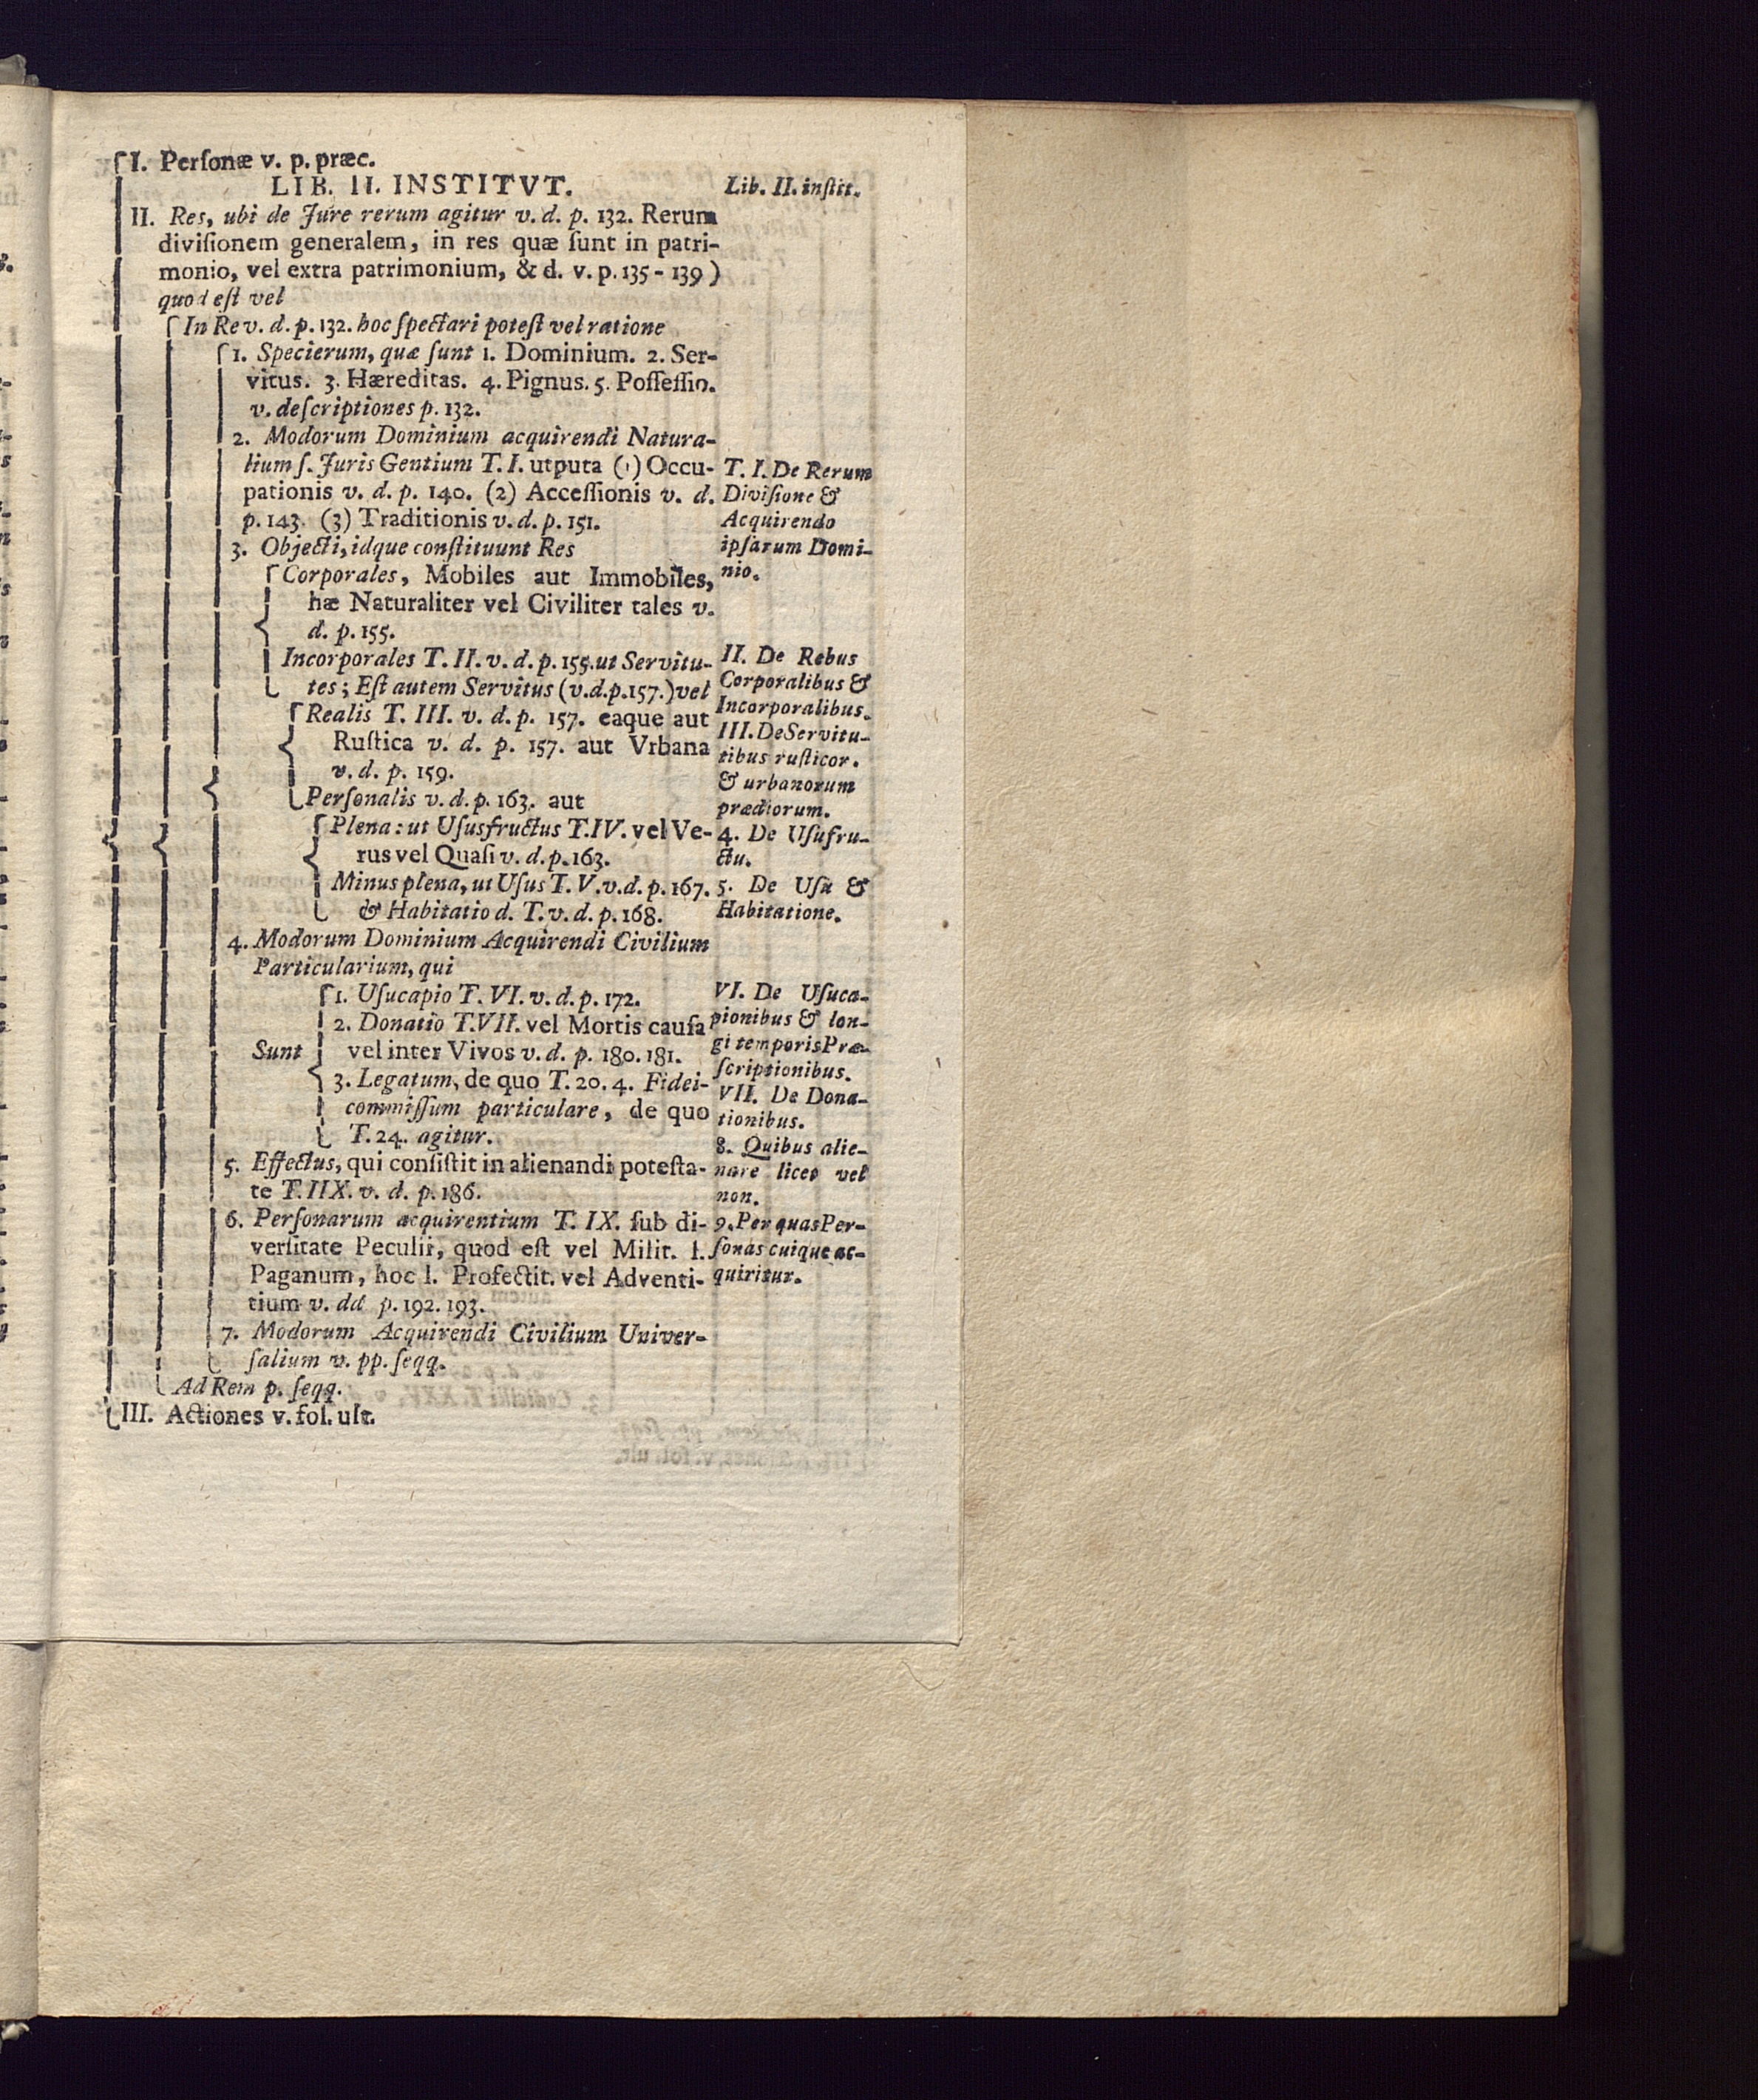 I. Perſonæ v. p. præc.
LIB. II. INSTITVT.
II. Res, ubi de Jure rerum agitur v. d. p. 132. Rerum
diviſionem generalem, in res quæ ſunt in patri-
monio, vel extra patrimonium, & d. v. p. 135-139)
quod eſt vel
In Re v. d. p. 132. hoc ſpectari poteſt vel ratione
1. Specierum, quæ ſunt 1. Dominium. 2. Ser-
vitus. 3. Hæreditas. 4. Pignus. 5. Poſſeſſio.
v. deſcriptiones p. 132.
2. Modorum Dominium acquirendi Natura-
lium ſ. Juris Gentium T. I. utputa (1) Occu-
pationis v. d. p. 140. (2) Acceſſionis v. d.
p. 143. (3) Traditionis v. d. p. 151.
3. Objecti, idque conſtituunt Res
Corporales, Mobiles aut Immobiles,
hæ Naturaliter vel Civiliter tales v.
d. p. 155.
Incorporales T. II. v. d. p. 155. ut Servitu-
tes; Eſt autem Servitus (v. d. p. 157.) vel
Realis T. III. v. d. p. 157. eaque aut
Ruſtica v. d. p. 157. aut Vrbana
v. d. p. 159.
Perſonalis v. d. p. 163. aut
Plena: ut Uſusfructus T. IV. vel Ve-
rus vel Quaſi v. d. p. 163.
Minus plena, ut Uſus T. V. v. d. p. 167.
& Habitatio d. T. v. d. p. 168.
4. Modorum Dominium Acquirendi Civilium
Particularium, qui
1. Uſucapio T. VI. v. d. p. 172.
2. Donatio T. VII. vel Mortis cauſa
Sunt vel inter Vivos v. d. p. 180. 181.
3. Legatum, de quo T. 20. 4. Fidei-
commiſſum particulare, de quo
T. 24. agitur.
5. Effectus, qui conſiſtit in alienandi poteſta-
te T. IIX. v. d. p. 186.
6. Perſonarum acquirentium T. IX. ſub di-
verſitate Peculii, quod eſt vel Milit. l.
Paganum, hoc l. Profectit. vel Adventi-
tium v. dd p. 192. 193.
7. Modorum Acquirendi Civilium Univer-
ſalium v. pp. ſeqq.
Ad Rem p. ſeqq.
III. Actiones v. fol. ult.
Lib. II. inſtit.
T. I. De Rerum
Diviſione &
Acquirendo
ipſarum Domi-
nio.
II. De Rebus
Corporalibus &
Incorporalibus.
III. De Servitu-
tibus ruſticor.
& urbanorum
prædiorum.
4. De Uſufru-
ctu.
5. De Uſu &
Habitatione.
VI. De Uſuca-
pionibus & lon-
gi temporis Præ-
ſcriptionibus.
VII. De Dona-
tionibus.
8. Quibus alie-
nare licet vel
non.
9. Per quas Per-
ſonas cuique ac-
quiritur.